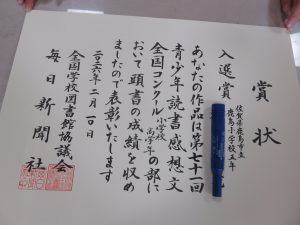 賞状
入選賞
佐賀県鹿島市立
鹿島小学校五年
あなたの作品は第七十一回
青少年読書感想文
全国コンクール小学校高学年の部に
おいて頭書の成績を収め
ましたので表彰いたします
二〇二六年二月一〇日
全国学校図書館協議会
毎日新聞社